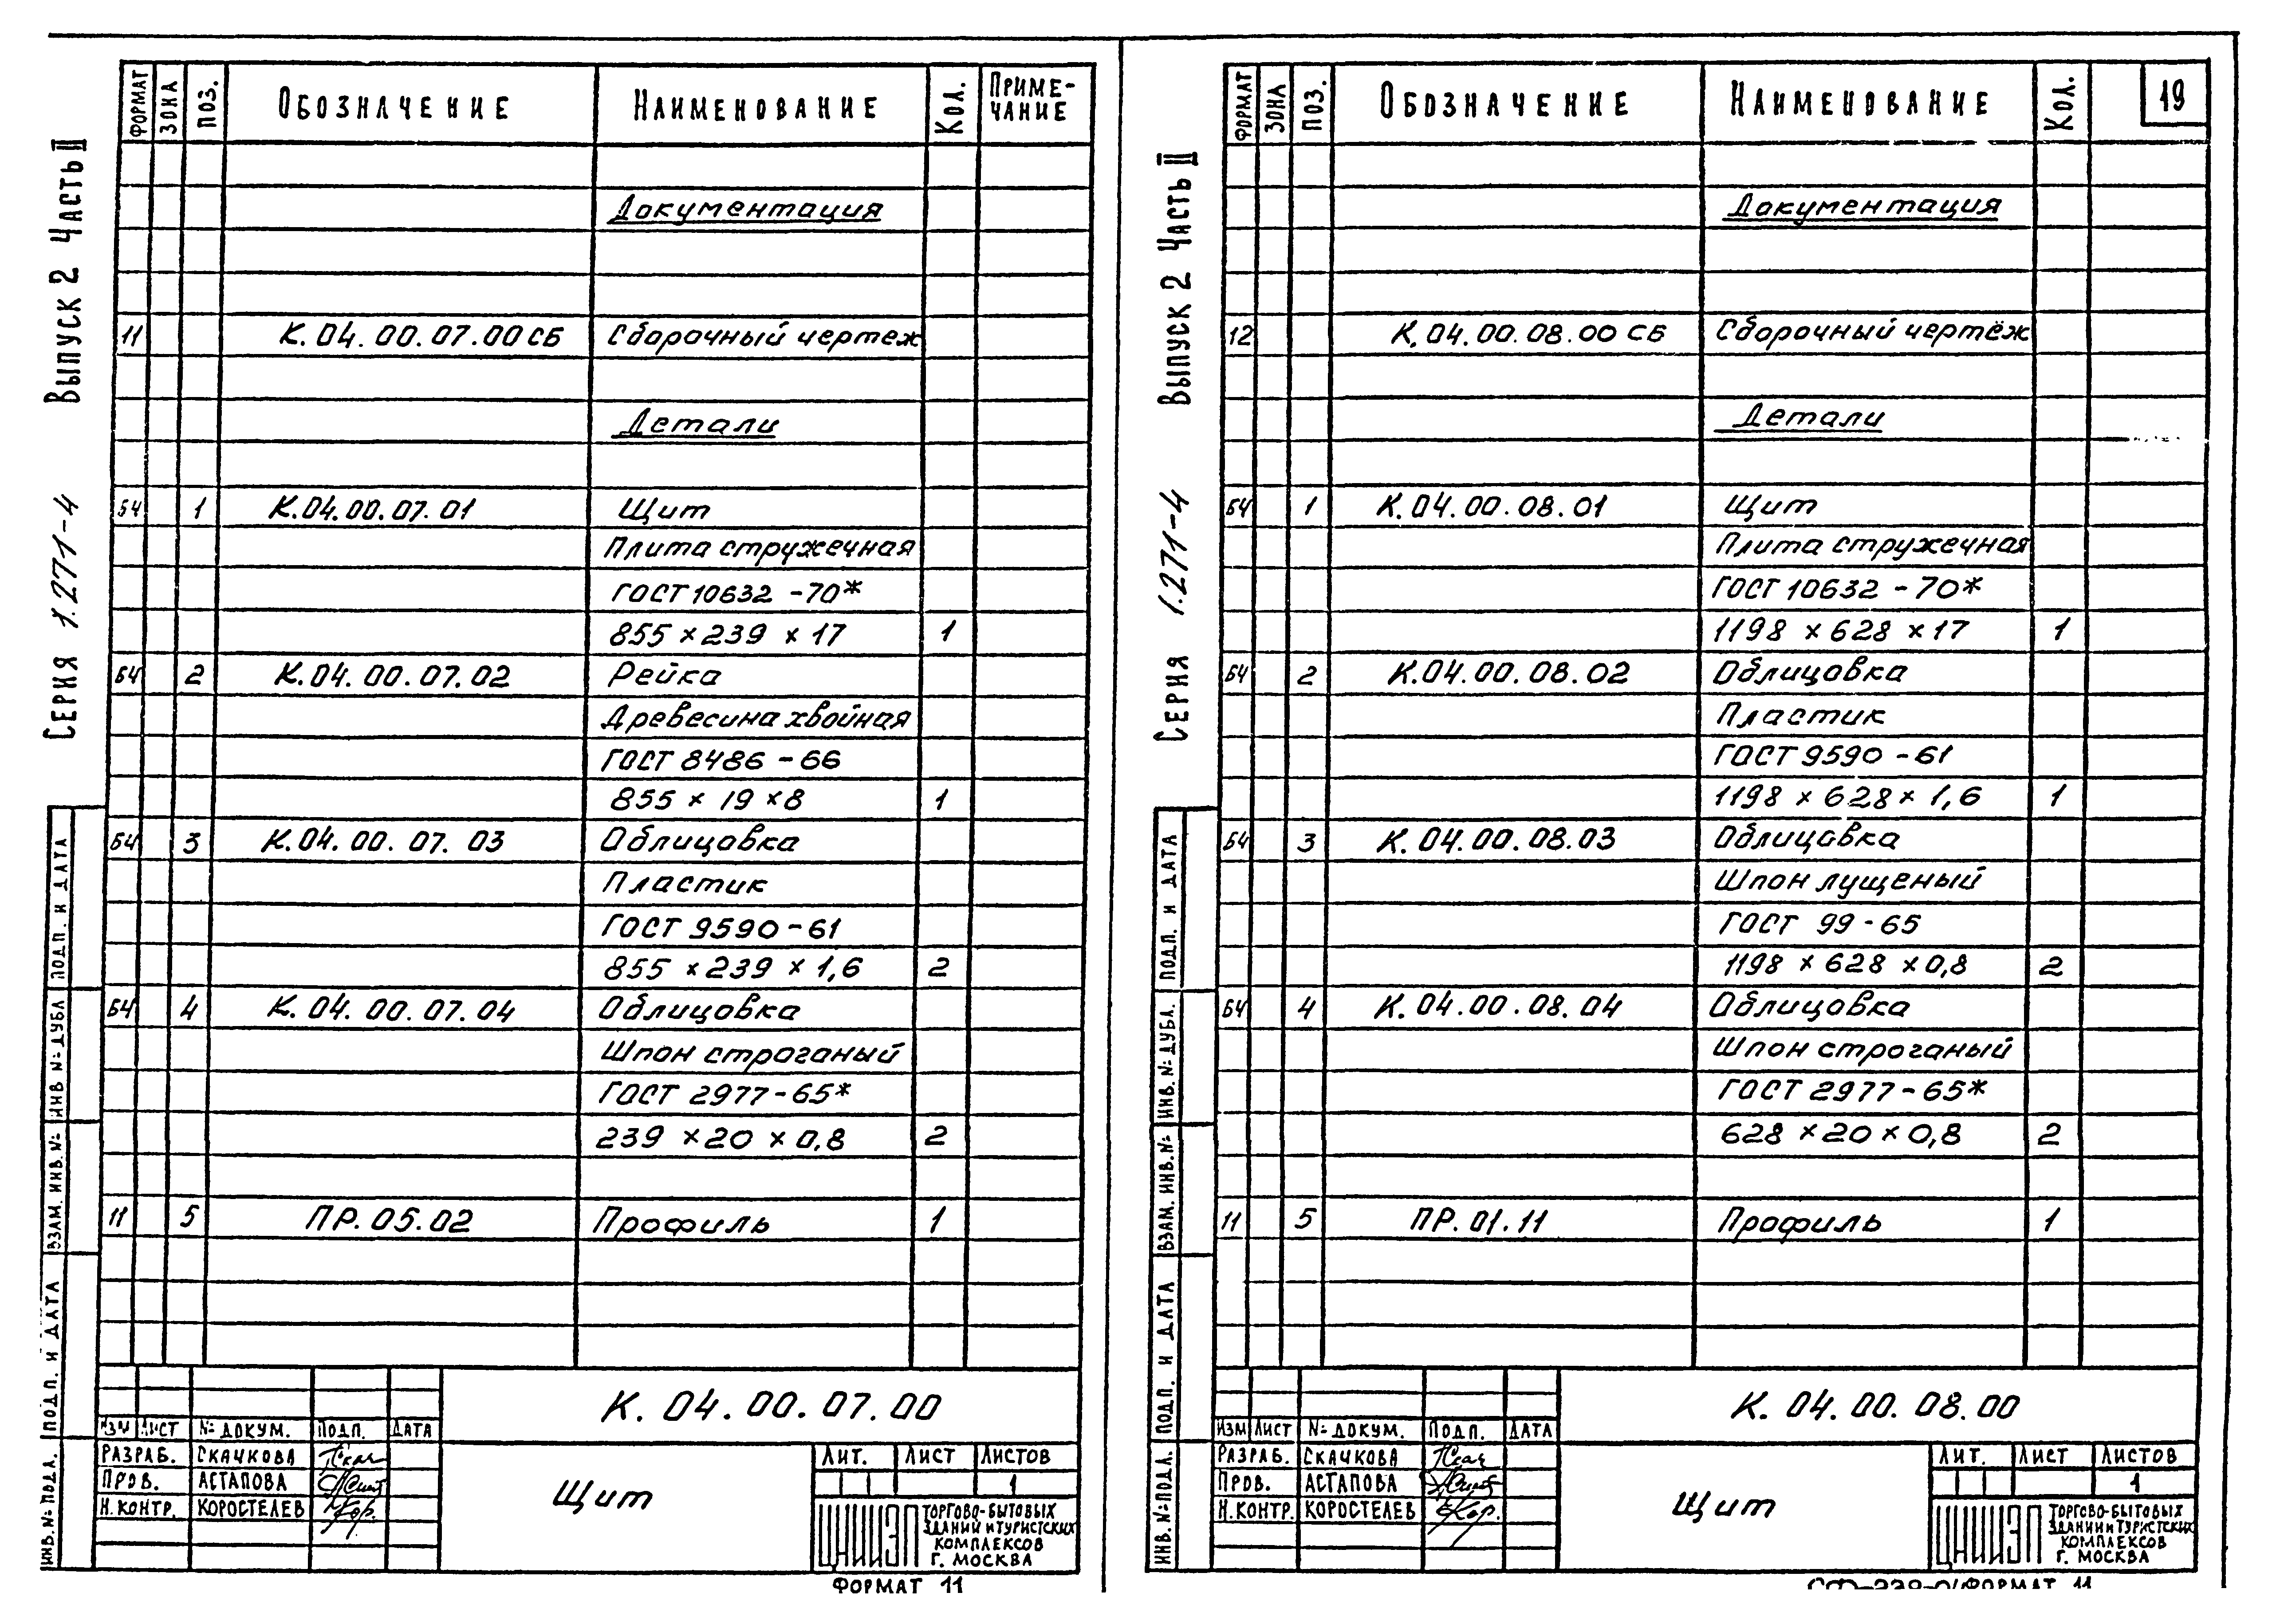 ФОРМАТ ЗОНА ПОЗ. ОБОЗНАЧЕНИЕ НАИМЕНОВАНИЕ КОЛ. ПРИМЕ-
ЧАНИЕ
Документация
11 К.04.00.07.00СБ Сборочный чертеж
Детали
Б4 1 К.04.00.07.01 Щит
Плита стружечная
ГОСТ 10632-70*
855 × 239 × 17 1
Б4 2 К.04.00.07.02 Рейка
Древесина хвойная
ГОСТ 8486-66
855 × 19 × 8 1
Б4 3 К.04.00.07.03 Облицовка
Пластик
ГОСТ 9590-61
855 × 239 × 1,6 2
Б4 4 К.04.00.07.04 Облицовка
Шпон строганый
ГОСТ 2977-65*
239 × 20 × 0,8 2
11 5 ПР.05.02 Профиль 1
СЕРИЯ 1.271-4 ВЫПУСК 2 ЧАСТЬ II
ИНВ.№ ПОДЛ. ПОДП. И ДАТА ВЗАМ. ИНВ.№ ИНВ №ДУБЛ ПОДП. И ДАТА
К.04.00.07.00
ИЗМ ЛИСТ № ДОКУМ. ПОДП. ДАТА
РАЗРАБ. СКАЧКОВА
ПРОВ. АСТАПОВА
Н.КОНТР. КОРОСТЕЛЕВ
Щит
ЛИТ. ЛИСТ ЛИСТОВ
1
ЦНИИЭП ТОРГОВО-БЫТОВЫХ
ЗДАНИЙ И ТУРИСТСКИХ
КОМПЛЕКСОВ
Г. МОСКВА
ФОРМАТ 11
ФОРМАТ ЗОНА ПОЗ. ОБОЗНАЧЕНИЕ НАИМЕНОВАНИЕ КОЛ. 19
Документация
12 К.04.00.08.00СБ Сборочный чертёж
Детали
Б4 1 К.04.00.08.01 Щит
Плита стружечная
ГОСТ 10632-70*
1198 × 628 × 17 1
Б4 2 К.04.00.08.02 Облицовка
Пластик
ГОСТ 9590-61
1198 × 628 × 1,6 1
Б4 3 К.04.00.08.03 Облицовка
Шпон лущеный
ГОСТ 99-65
1198 × 628 × 0,8 2
Б4 4 К.04.00.08.04 Облицовка
Шпон строганый
ГОСТ 2977-65*
628 × 20 × 0,8 2
11 5 ПР.01.11 Профиль 1
СЕРИЯ 1.271-4 ВЫПУСК 2 ЧАСТЬ II
ИНВ.№ ПОДЛ. ПОДП. И ДАТА ВЗАМ. ИНВ.№ ИНВ. № ДУБЛ. ПОДП. И ДАТА
К.04.00.08.00
ИЗМ ЛИСТ № ДОКУМ. ПОДП. ДАТА
РАЗРАБ. СКАЧКОВА
ПРОВ. АСТАПОВА
Н.КОНТР. КОРОСТЕЛЕВ
Щит
ЛИТ. ЛИСТ ЛИСТОВ
1
ЦНИИЭП ТОРГОВО-БЫТОВЫХ
ЗДАНИЙ И ТУРИСТСКИХ
КОМПЛЕКСОВ
Г. МОСКВА
ФОРМАТ 11